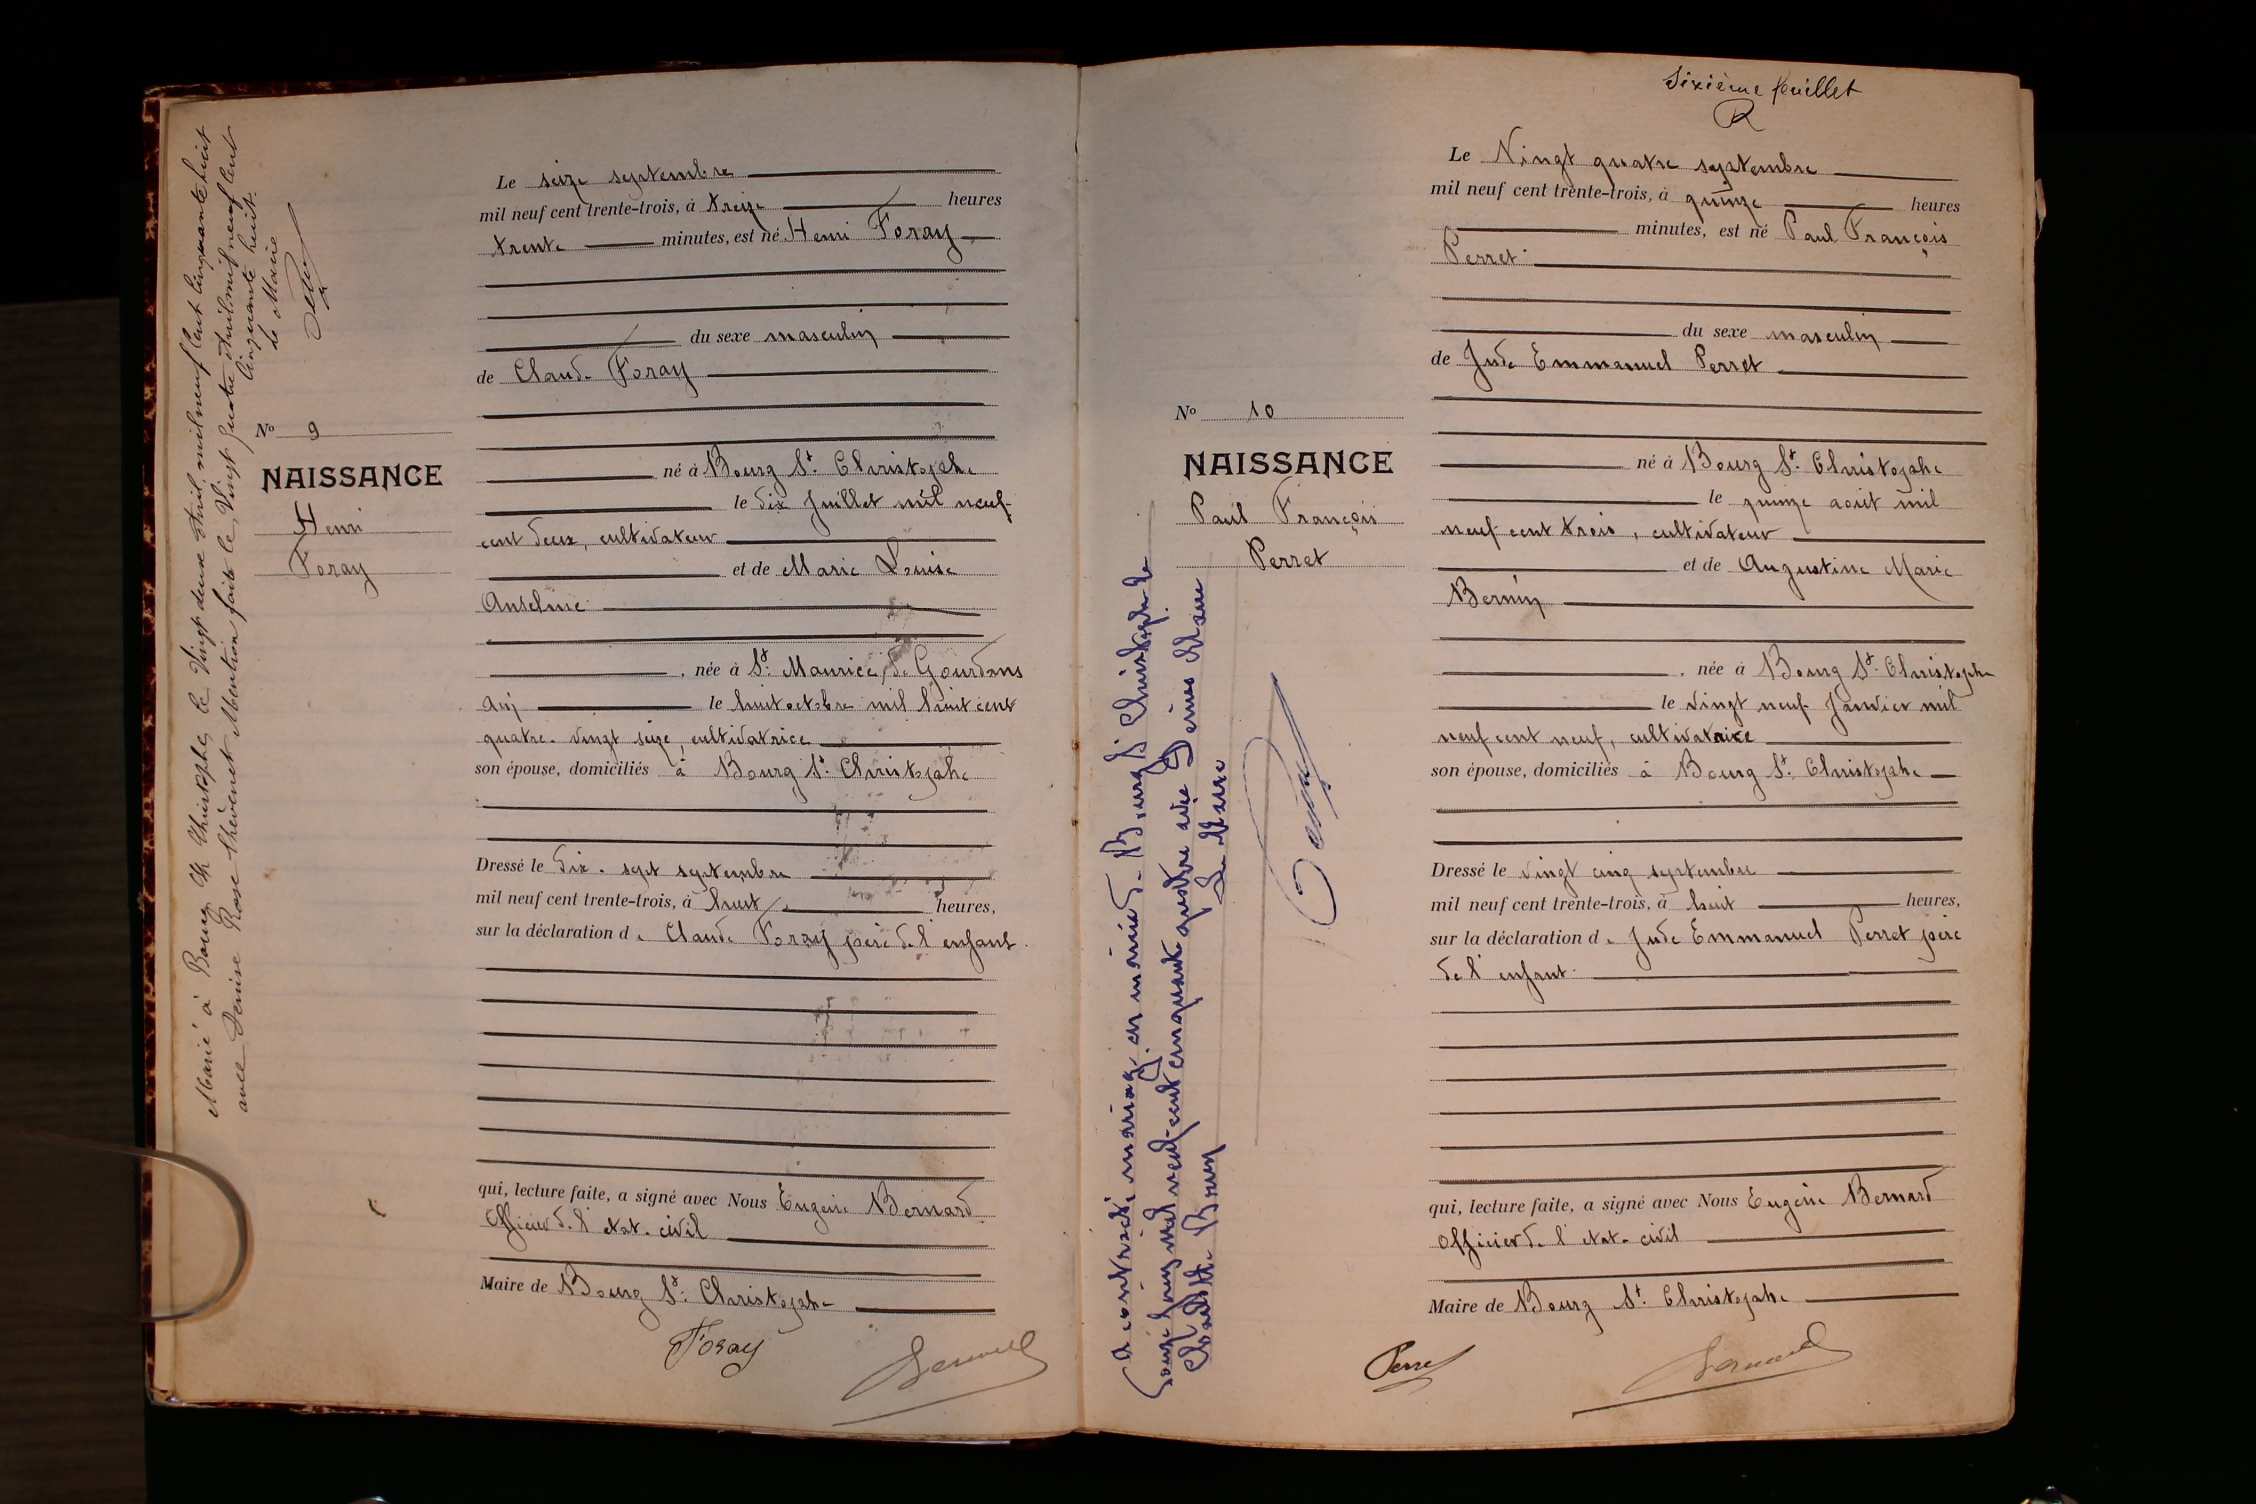 Marié à Bourg St Christophe, le Vingt deux Avril mil neuf Cent Cinquante huit
avec Denise Rose Thévenet Mention faite le Vingt quatre Avril mil neuf Cent
Cinquante huit.
le Maire
N° 9
NAISSANCE
Henri
Foray
Le seize septembre
mil neuf cent trente-trois, à treize heures
trente minutes, est né Henri Foray
du sexe masculin
de Claude Foray
né à Bourg St. Christophe
le dix Juillet mil neuf
cent deux, cultivateur
et de Marie Louise
Anselme
, née à St. Maurice de Gourdans
Ain le huit octobre mil huit cent
quatre-vingt seize, cultivatrice
son épouse, domiciliés à Bourg St. Christophe
Dressé le dix-sept septembre
mil neuf cent trente-trois, à huit heures,
sur la déclaration de Claude Foray père de l'enfant.
qui, lecture faite, a signé avec Nous Eugène Bernard
Officier de l'etat-civil
Maire de Bourg St. Christophe
Foray
Bernard
Sixième feuillet
R
N° 10
NAISSANCE
Paul François
Perret
A contracté mariage en mairie de Bourg St Christophe le
mil neuf-cent cinquante quatre avec Denise Marie
Brun
Le Maire
Le Vingt quatre septembre
mil neuf cent trente-trois, à quinze heures
minutes, est né Paul François
Perret
du sexe masculin
de Jude Emmanuel Perret
né à Bourg St. Christophe
le quinze août mil
neuf cent trois, cultivateur
et de Augustine Marie
Bernin
, née à Bourg St. Christophe
le vingt neuf Janvier mil
neuf cent neuf, cultivatrice
son épouse, domiciliés à Bourg St. Christophe
Dressé le vingt cinq septembre
mil neuf cent trente-trois, à huit heures,
sur la déclaration de Jude Emmanuel Perret père
de l'enfant
qui, lecture faite, a signé avec Nous Eugène Bernard
Officier de l'etat-civil
Maire de Bourg St. Christophe
Perret
Bernard